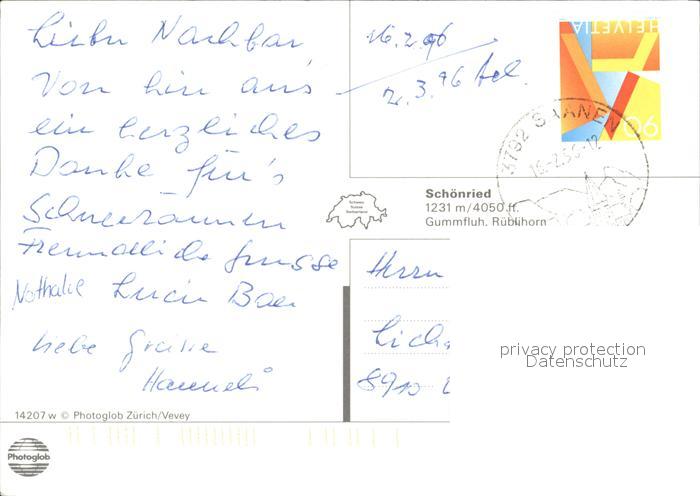 Lieber Nachbar
Von hir aus
ein herzliches
Danke für's
Schneeräumen
Freundliche Grüsse
Nathalie Lucie Baer
liebe Grüsse
Hanneli
14207 w © Photoglob Zürich/Vevey
Photoglob
16.2.96
2.3.96 tel.
HELVETIA
90
3792 SAANEN
16.2.96-12
Schweiz
Suisse
Switzerland
Schönried
1231 m/4050 ft.
Gummfluh. Rüblihorn
Herrn
8910
privacy protection
Datenschutz